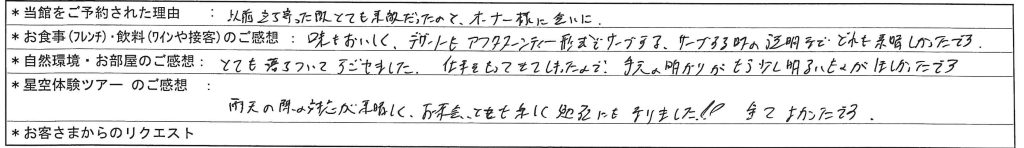 *当館をご予約された理由 : 以前立ち寄った際とても素敵だったので、オーナー様に会いに.
*お食事(フレンチ)・飲料(ワインや接客)のご感想 : 味もおいしく、デザートもアフタヌーンティー形式でサーブする、サーブする時の説明まで どれも素晴しかったです.
*自然環境・お部屋のご感想 : とても落ちついてすごせました. 仕事をもってきてしまったので、手元の明かりがもう少し明るいとよかったです
*星空体験ツアー のご感想 :
雨天の際の対応が素晴しく、お茶会、とても楽しく 思い出にもなりました!! 全て よかったです.
*お客さまからのリクエスト